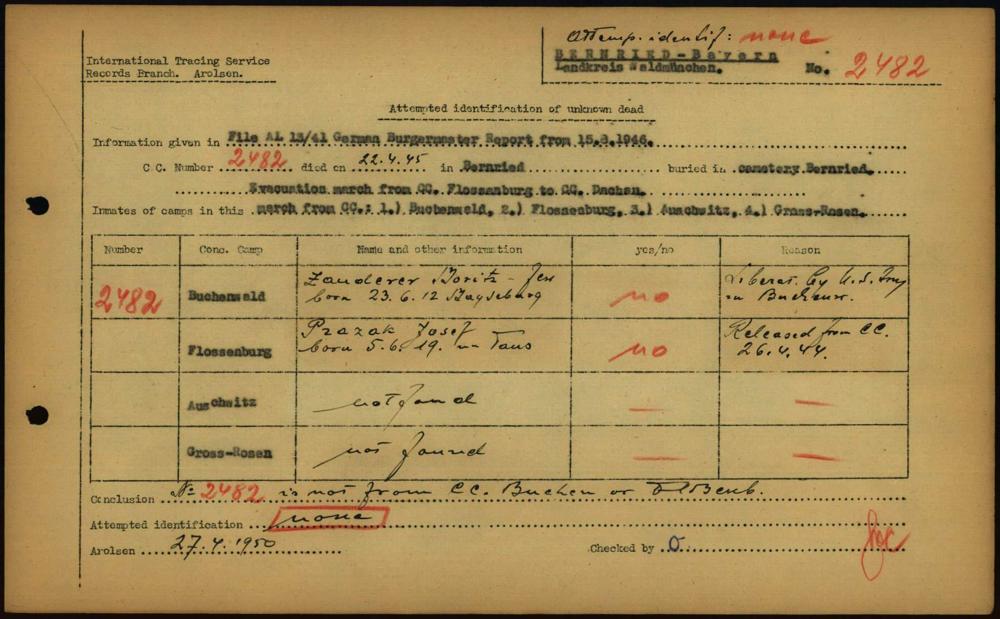 Attemp. identif: none
International Tracing Service
Records Branch. Arolsen.
BERNRIED-Bayern
Landkreis Waldmünchen.
No. 2482
Attempted identification of unknown dead
Information given in File AL 13/41 German Burgermaster Report from 15.8.1946.
CC. Number 2482 died on 22.4.45 in Bernried buried in cemetery Bernried.
Evacuation march from CC. Flossenburg to CC. Dachau.
Inmates of camps in this march from CC.: 1.) Buchenwald, 2.) Flossenburg, 3.) Auschwitz, 4.) Gross-Rosen.
Number Conc. Camp Name and other information yes/no Reason
2482 Buchenwald Zanderer Moritz - Jew
born 23.6.12 no Liberat. by U.S. Army
in Buchenw.
Flossenburg Prazak Josef
born 5.6.19. in Taus no Released from CC.
26.4.44.
Auschwitz not found — —
Gross-Rosen not found — —
Conclusion No 2482 is not from CC. Buchen or Flbenb.
Attempted identification none
Arolsen 27.4.1950
Checked by